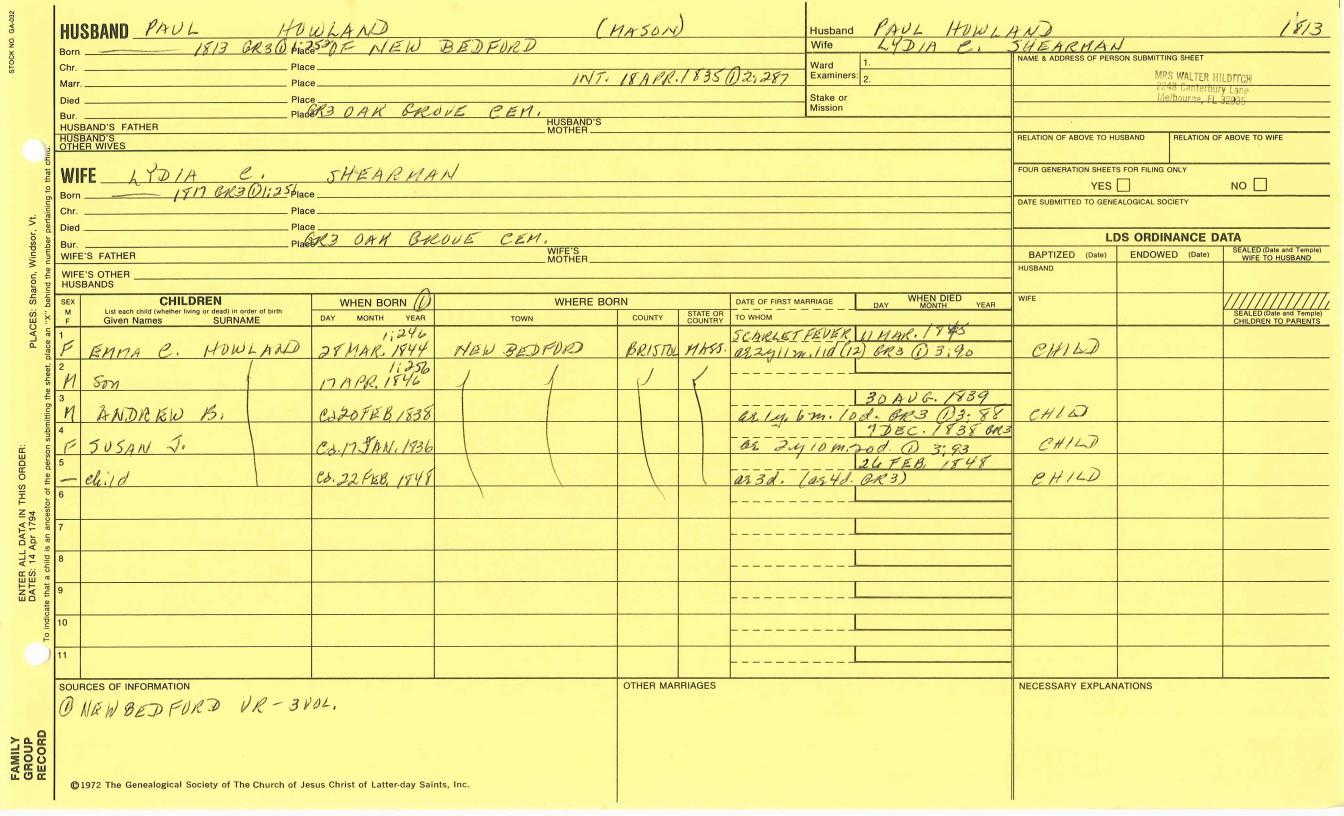 STOCK NO. GA-032
HUSBAND PAUL HOWLAND (MASON)
Born 1813 GR3 ① 1:253 Place OF NEW BEDFORD
Chr. Place
Marr. Place INT. 18 APR. 1835 ① 2:287
Died Place
Bur. Place GR3 OAK GROVE CEM.
HUSBAND'S FATHER HUSBAND'S MOTHER
HUSBAND'S OTHER WIVES
Husband PAUL HOWLAND 1813
Wife LYDIA C. SHEARMAN
Ward Examiners: 1.
2.
Stake or Mission
NAME & ADDRESS OF PERSON SUBMITTING SHEET
MRS WALTER HILDITCH
2248 Canterbury Lane
Melbourne, FL 32935
RELATION OF ABOVE TO HUSBAND RELATION OF ABOVE TO WIFE
FOUR GENERATION SHEETS FOR FILING ONLY
YES NO
DATE SUBMITTED TO GENEALOGICAL SOCIETY
WIFE LYDIA C. SHEARMAN
Born 1817 GR3 ① 1:256 Place
Chr. Place
Died Place
Bur. Place GR3 OAK GROVE CEM.
WIFE'S FATHER WIFE'S MOTHER
WIFE'S OTHER HUSBANDS
LDS ORDINANCE DATA
BAPTIZED (Date) ENDOWED (Date) SEALED (Date and Temple) WIFE TO HUSBAND
HUSBAND
WIFE
SEALED (Date and Temple) CHILDREN TO PARENTS
SEX M F CHILDREN WHEN BORN ① WHERE BORN DATE OF FIRST MARRIAGE WHEN DIED
List each child (whether living or dead) in order of birth DAY MONTH YEAR
Given Names SURNAME DAY MONTH YEAR TOWN COUNTY STATE OR COUNTRY TO WHOM
1 1:246 SCARLET FEVER 11 MAR. 1845
F EMMA C. HOWLAND 28 MAR. 1844 NEW BEDFORD BRISTOL MASS. ae 2y 11m. 11d (12) GR3 ① 3:90 CHILD
2 1:256
M Son 17 APR. 1846
3 30 AUG. 1839
M ANDREW B. Ca. 20 FEB. 1838 ae 1y. 6m. 10d. GR3 ① 3:88 CHILD
4 7 DEC. 1838 GR3
F SUSAN J. Ca. 17 JAN. 1936 ae 2y 10m. 20d. ① 3:93 CHILD
5 26 FEB. 1848
— child Ca. 22 FEB. 1848 ae 3d. (ae 4d. GR3) CHILD
6
7
8
9
10
11
SOURCES OF INFORMATION OTHER MARRIAGES NECESSARY EXPLANATIONS
① NEW BEDFORD VR - 3 VOL.
©1972 The Genealogical Society of The Church of Jesus Christ of Latter-day Saints, Inc.
FAMILY GROUP RECORD
ENTER ALL DATA IN THIS ORDER:
DATES: 14 Apr 1794 PLACES: Sharon, Windsor, Vt.
To indicate that a child is an ancestor of the person submitting the sheet, place an "X" behind the number pertaining to that child.